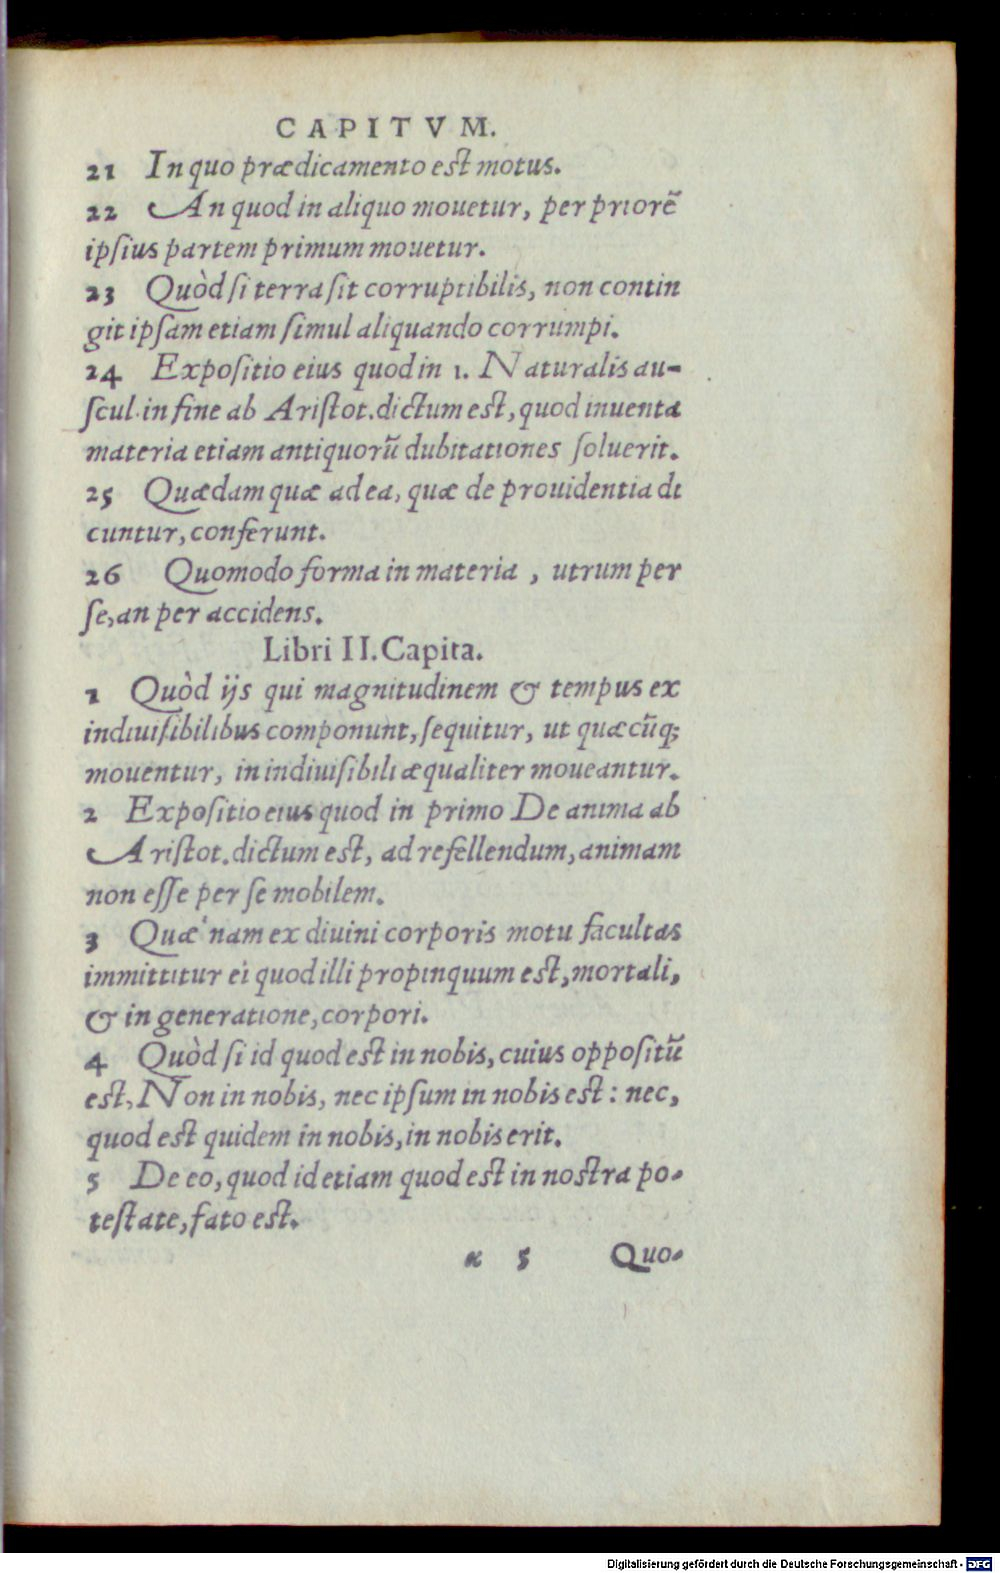 CAPITVM.
21 In quo prædicamento est motus.
22 An quod in aliquo mouetur, per priorẽ
ipsius partem primum mouetur.
23 Quòd si terra sit corruptibilis, non contin
git ipsam etiam simul aliquando corrumpi.
24 Expositio eius quod in 1. Naturalis au-
scul. in fine ab Aristot. dictum est, quod inuenta
materia etiam antiquorũ dubitationes soluerit.
25 Quædam quæ ad ea, quæ de prouidentia di
cuntur, conferunt.
26 Quomodo forma in materia, utrum per
se, an per accidens.
Libri II. Capita.
1 Quòd ijs qui magnitudinem & tempus ex
indiuisibilibus componunt, sequitur, ut quæcũq;
mouentur, in indiuisibili æqualiter moueantur.
2 Expositio eius quod in primo De anima ab
Aristot. dictum est, ad refellendum, animam
non esse per se mobilem.
3 Quæ nam ex diuini corporis motu facultas
immittitur ei quod illi propinquum est, mortali,
& in generatione, corpori.
4 Quòd si id quod est in nobis, cuius oppositũ
est, Non in nobis, nec ipsum in nobis est: nec,
quod est quidem in nobis, in nobis erit.
5 De eo, quod id etiam quod est in nostra po-
testate, fato est.
α 5 Quo-
Digitalisierung gefördert durch die Deutsche Forschungsgemeinschaft - DFG